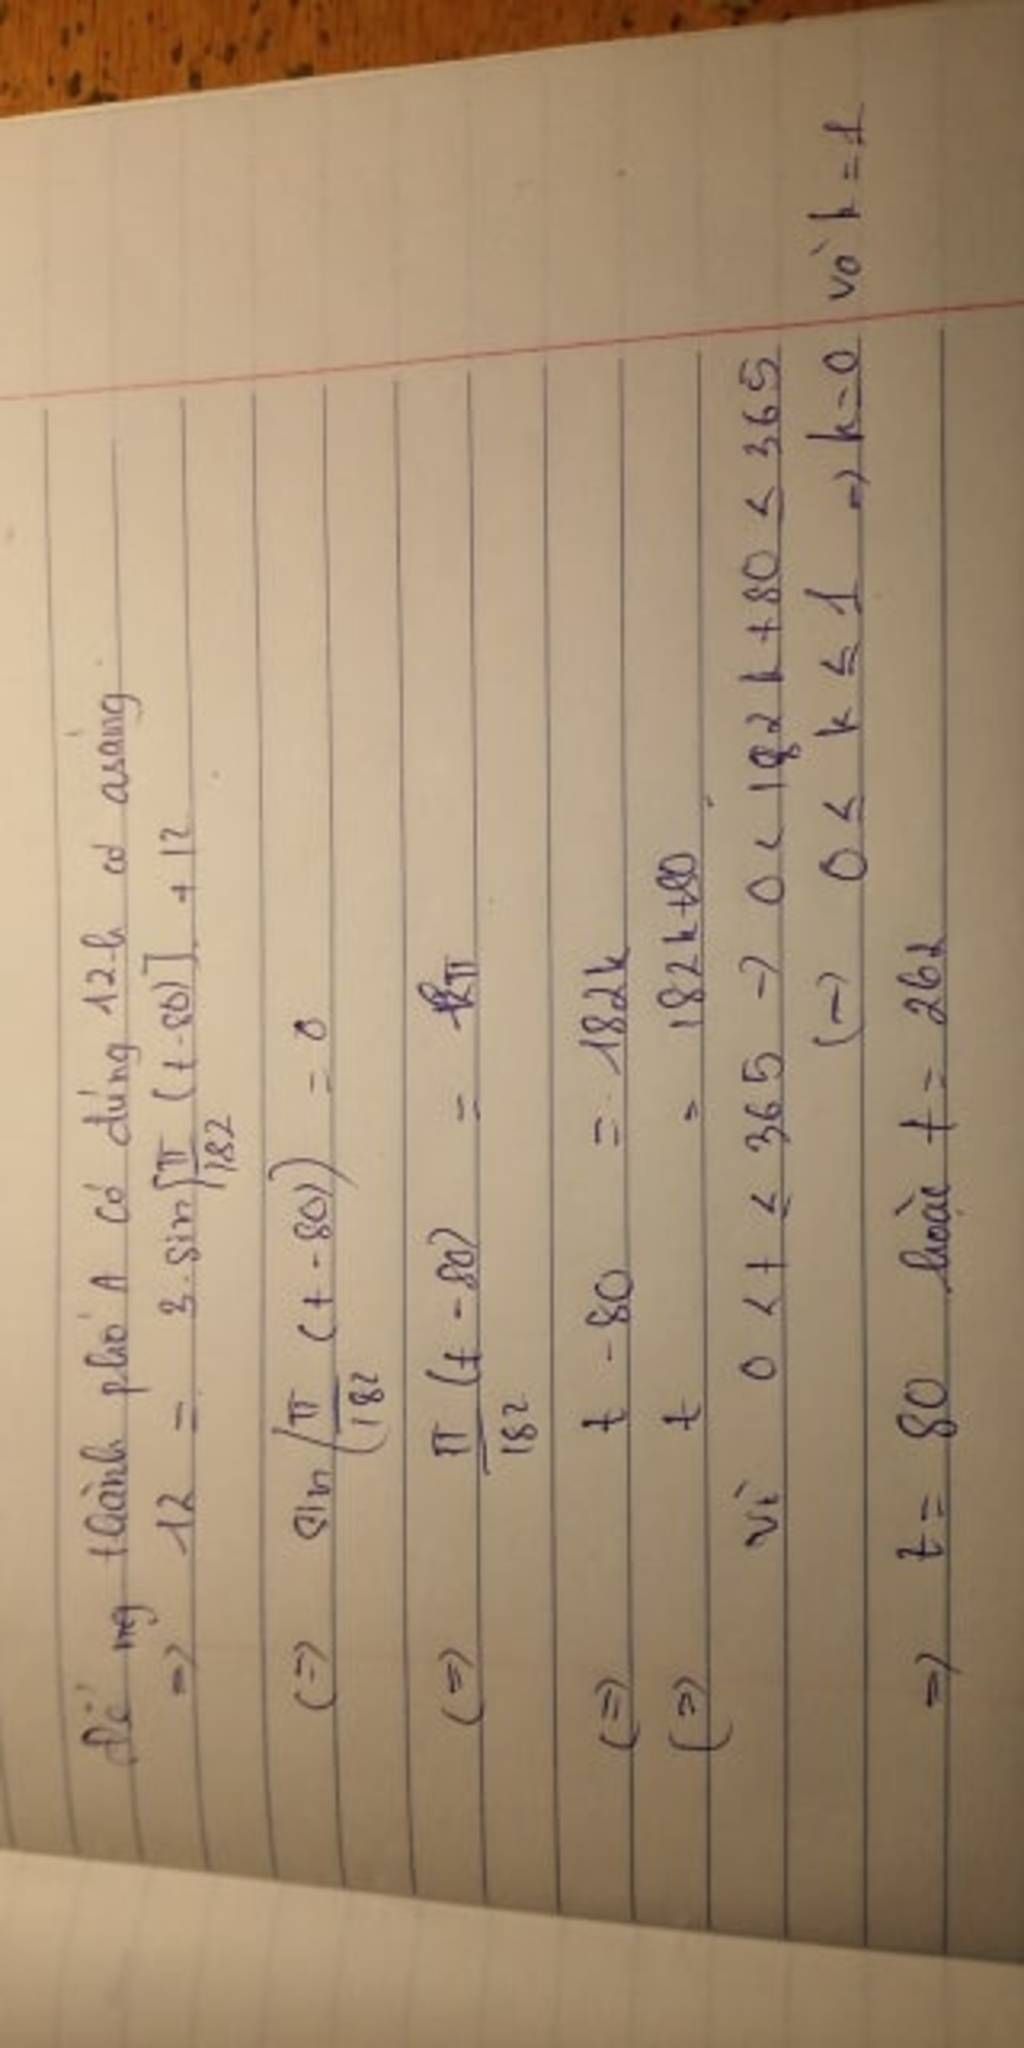 Để ng thành phố A có đúng 12h có ásáng
=> 12 = 3.sin[π/182 (t-80)] + 12
(=) sin(π/182 (t-80)) = 0
(=) π/182 (t-80) = kπ
(=) t - 80 = 182k
(=) t = 182k+80
Vì 0 < t ≤ 365 -) 0 < 182k+80 ≤ 365
(-) 0 ≤ k ≤ 1 -) k=0 và k=1
=) t = 80 hoặc t = 262